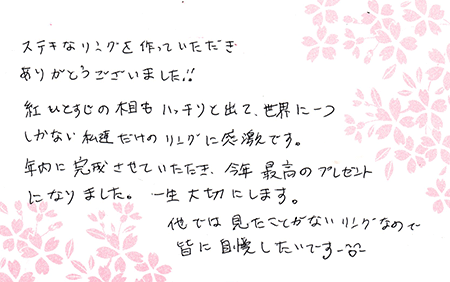 ステキなリングを作っていただき
ありがとうございました!!
紅ひとすじの木目も ハッキリと出て、世界に一つ
しかない 私達だけの リングに感激です。
年内に 完成させていただき、今年 最高の プレゼント
になりました。 一生 大切にします。
他では 見たことがない リングなので
皆に 自慢したいです